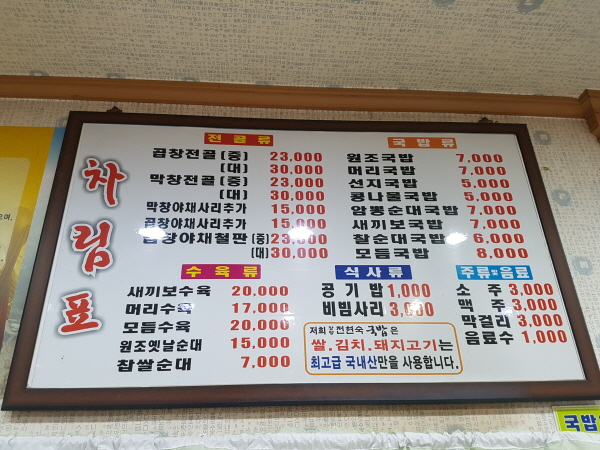 차림표
전골류
곱창전골 (중) 23,000
(대) 30,000
막창전골 (중) 23,000
(대) 30,000
막창야채사리추가 15,000
곱창야채사리추가 15,000
곱창야채철판 (중) 23,000
(대) 30,000
국밥류
원조국밥 7,000
머리국밥 7,000
선지국밥 5,000
콩나물국밥 5,000
암뽕순대국밥 7,000
새끼보국밥 7,000
찰순대국밥 6,000
모듬국밥 8,000
수육류
새끼보수육 20,000
머리수육 17,000
모듬수육 20,000
원조옛날순대 15,000
찹쌀순대 7,000
식사류
공기밥 1,000
비빔사리 3,000
저희 전현숙 국밥은
쌀.김치.돼지고기는
최고급 국내산만을 사용합니다.
주류및음료
소주 3,000
맥주 3,000
막걸리 3,000
음료수 1,000
국밥